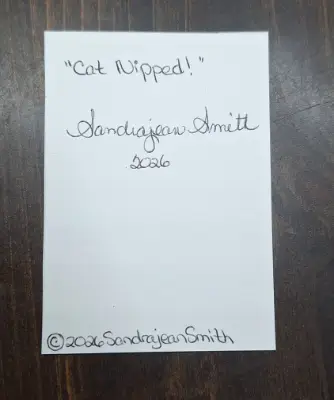 "Cat Nipped!"
Sandrajean Smith
2026
©2026SandrajeanSmith